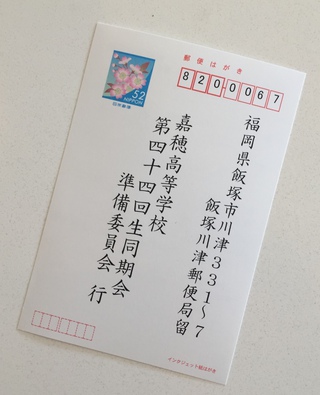 郵便はがき
820-0067
52
NIPPON
日本郵便
福岡県飯塚市川津331~7
飯塚川津郵便局留
嘉穂高等学校
第四十四回生同期会
準備委員会 行
インクジェット紙はがき